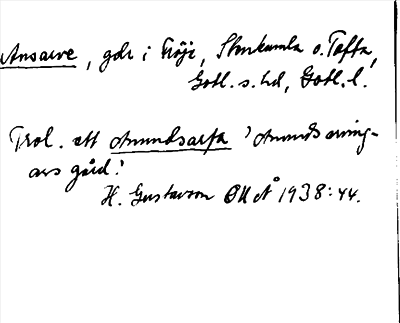 Ansarve, gdr i Fröje, Stenkumla o. Tofta,
Gotl. s. hd, Gotl. l.
Trol. ett Amundsarfa 'Amunds arving-
ars gård.'
H. Gustavson OUÅ 1938:44.